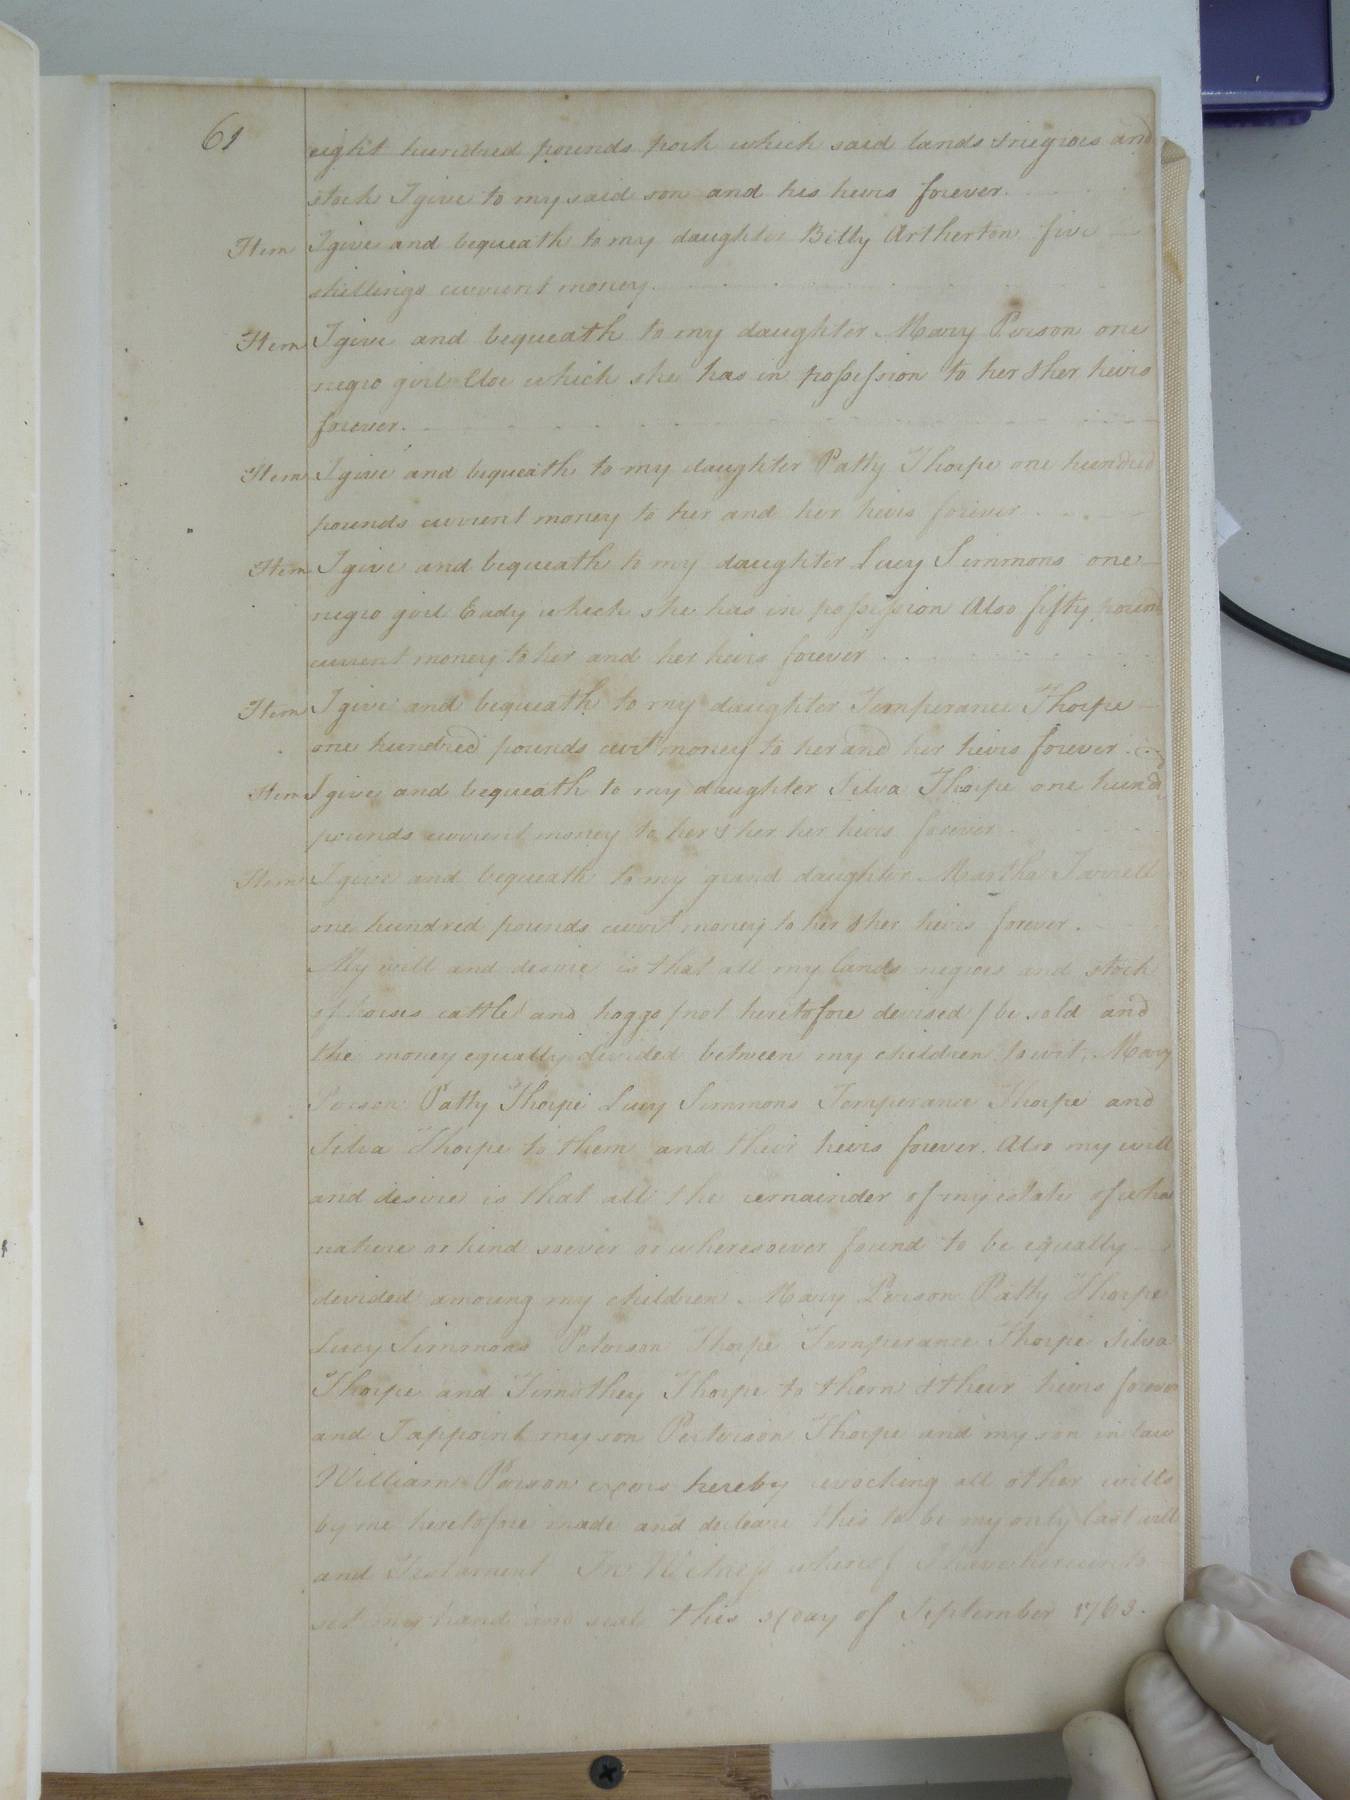 61
eight hundred pounds pork which said lands & negroes and
stock I give to my said son and his heirs forever.
Item I give and bequeath to my daughter Bitty Artherton five
shillings current money.
Item I give and bequeath to my daughter Mary Person one
negro girl Cloe which she has in possession to her & her heirs
forever.
Item I give and bequeath to my daughter Patty Thorpe one hundred
pounds current money to her and her heirs forever
Item I give and bequeath to my daughter Lucy Simmons one
negro girl Eady which she has in possession Also fifty poun
current money to her and her heirs forever
Item I give and bequeath to my daughter Temperance Thorpe
one hundred pounds curt money to her and her heirs forever.
Item I give and bequeath to my daughter Silva Thorpe one hund
pounds current money to her & her her heirs forever
Item I give and bequeath to my grand daughter Martha Jarrell
one hundred pounds curt money to her & her heirs forever.
My will and desire is that all my lands negroes and stock
of horses cattle and hoggs /not heretofore devised/ be sold and
the money equally divided between my children to wit, Mary
Person Patty Thorpe Lucy Simmons Temperance Thorpe and
Silva Thorpe to them and their heirs forever. Also my will
and desire is that all the remainder of my estate of what
nature or kind soever or wheresoever found to be equally
devided amoung my children Mary Person Patty Thorpe
Lucy Simmons Peterson Thorpe Temperance Thorpe Silva
Thorpe and Timothey Thorpe to them & their heirs forever
and I appoint my son Peterson Thorpe and my son in law
William Person exors hereby revocking all other wills
by me heretofore made and declare this to be my only last will
and Testament In Witness whereof I have hereunto
set my hand and seal this day of September 1763.